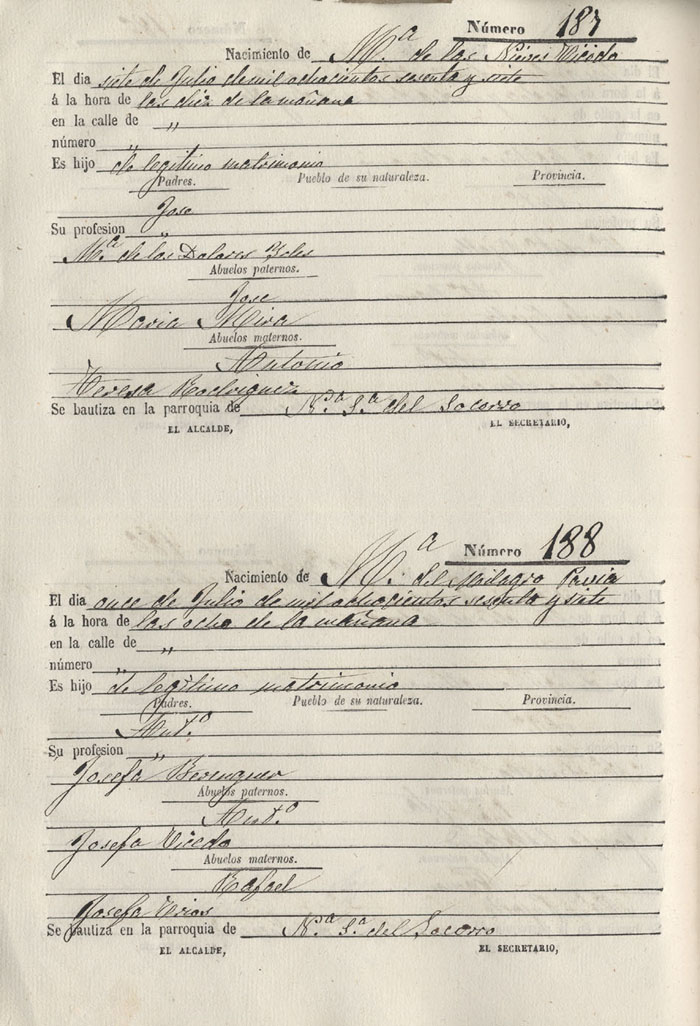 Número 187
Nacimiento de Mª de las Nieves Vicedo
El dia siete de Julio de mil ochocientos sesenta y siete
á la hora de las diez de la mañana
en la calle de "
número "
Es hijo de legitimo matrimonio
Padres. Pueblo de su naturaleza. Provincia.
Jose
Su profesion "
Mª de los Dolores
Abuelos paternos.
Jose
Maria Mira
Abuelos maternos.
Antonio
Teresa Rodriguez
Se bautiza en la parroquia de Nª Sª del Socorro
EL ALCALDE, EL SECRETARIO,
Número 188
Nacimiento de Mª del Milagro Pavia
El dia once de Julio de mil ochocientos sesenta y siete
á la hora de las ocho de la mañana
en la calle de "
número "
Es hijo de legitimo matrimonio
Padres. Pueblo de su naturaleza. Provincia.
Antº
Su profesion "
Josefa Berenguer
Abuelos paternos.
Antº
Josefa Vicedo
Abuelos maternos.
Rafael
Josefa
Se bautiza en la parroquia de Nª Sª del Socorro
EL ALCALDE, EL SECRETARIO,